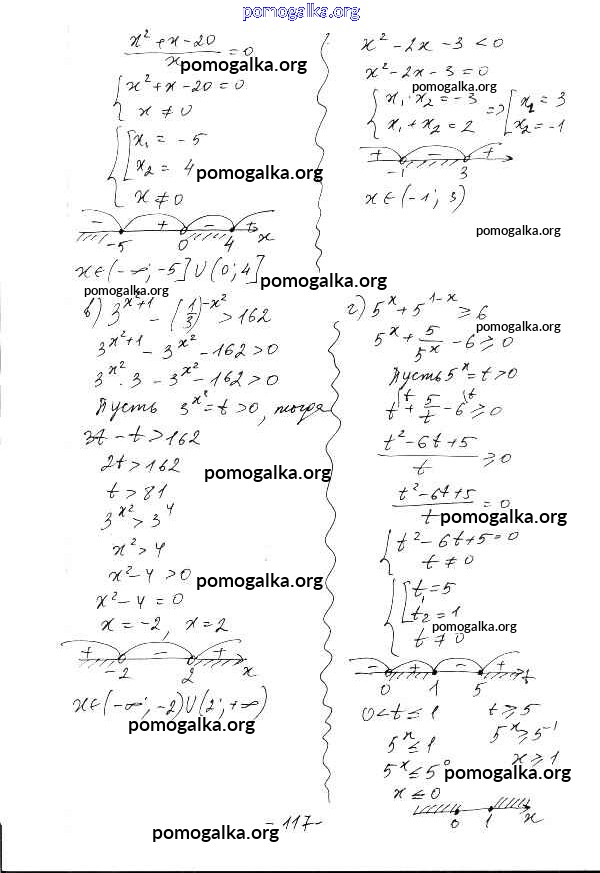 pomogalka.org
(x² + x - 20)/x = 0
pomogalka.org
{ x² + x - 20 = 0
x ≠ 0
{ [ x₁ = -5
x₂ = 4
pomogalka.org
x ≠ 0
- + - +
-5 0 4 x
x ∈ (-∞; -5] ∪ (0; 4]
pomogalka.org
x² - 2x - 3 < 0
x² - 2x - 3 = 0
pomogalka.org
{ x₁ · x₂ = -3
x₁ + x₂ = 2 => [ x₁ = 3
x₂ = -1
+ - +
-1 3
x ∈ (-1; 3)
pomogalka.org
pomogalka.org
в) 3^(x²+1) - (1/3)^(-x²) > 162
3^(x²+1) - 3^(x²) - 162 > 0
3^(x²) · 3 - 3^(x²) - 162 > 0
Пусть 3^(x²) = t > 0, тогда
3t - t > 162
2t > 162
pomogalka.org
t > 81
3^(x²) > 3^4
x² > 4
x² - 4 > 0
pomogalka.org
x² - 4 = 0
x = -2, x = 2
+ - +
-2 2 x
x ∈ (-∞; -2) ∪ (2; +∞)
pomogalka.org
г) 5^x + 5^(1-x) ≥ 6
pomogalka.org
5^x + 5/5^x - 6 ≥ 0
Пусть 5^x = t > 0
t + 5/t - 6 ≥ 0
(t² - 6t + 5)/t ≥ 0
(t² - 6t + 5)/t = 0
pomogalka.org
{ t² - 6t + 5 = 0
t ≠ 0
{ [ t₁ = 5
t₂ = 1
pomogalka.org
t ≠ 0
- + - +
0 1 5 t
0 < t ≤ 1 t ≥ 5
5^x ≤ 1 5^x ≥ 5^1
5^x ≤ 5^0 x ≥ 1
pomogalka.org
x ≤ 0
0 1 x
- 117 -
pomogalka.org